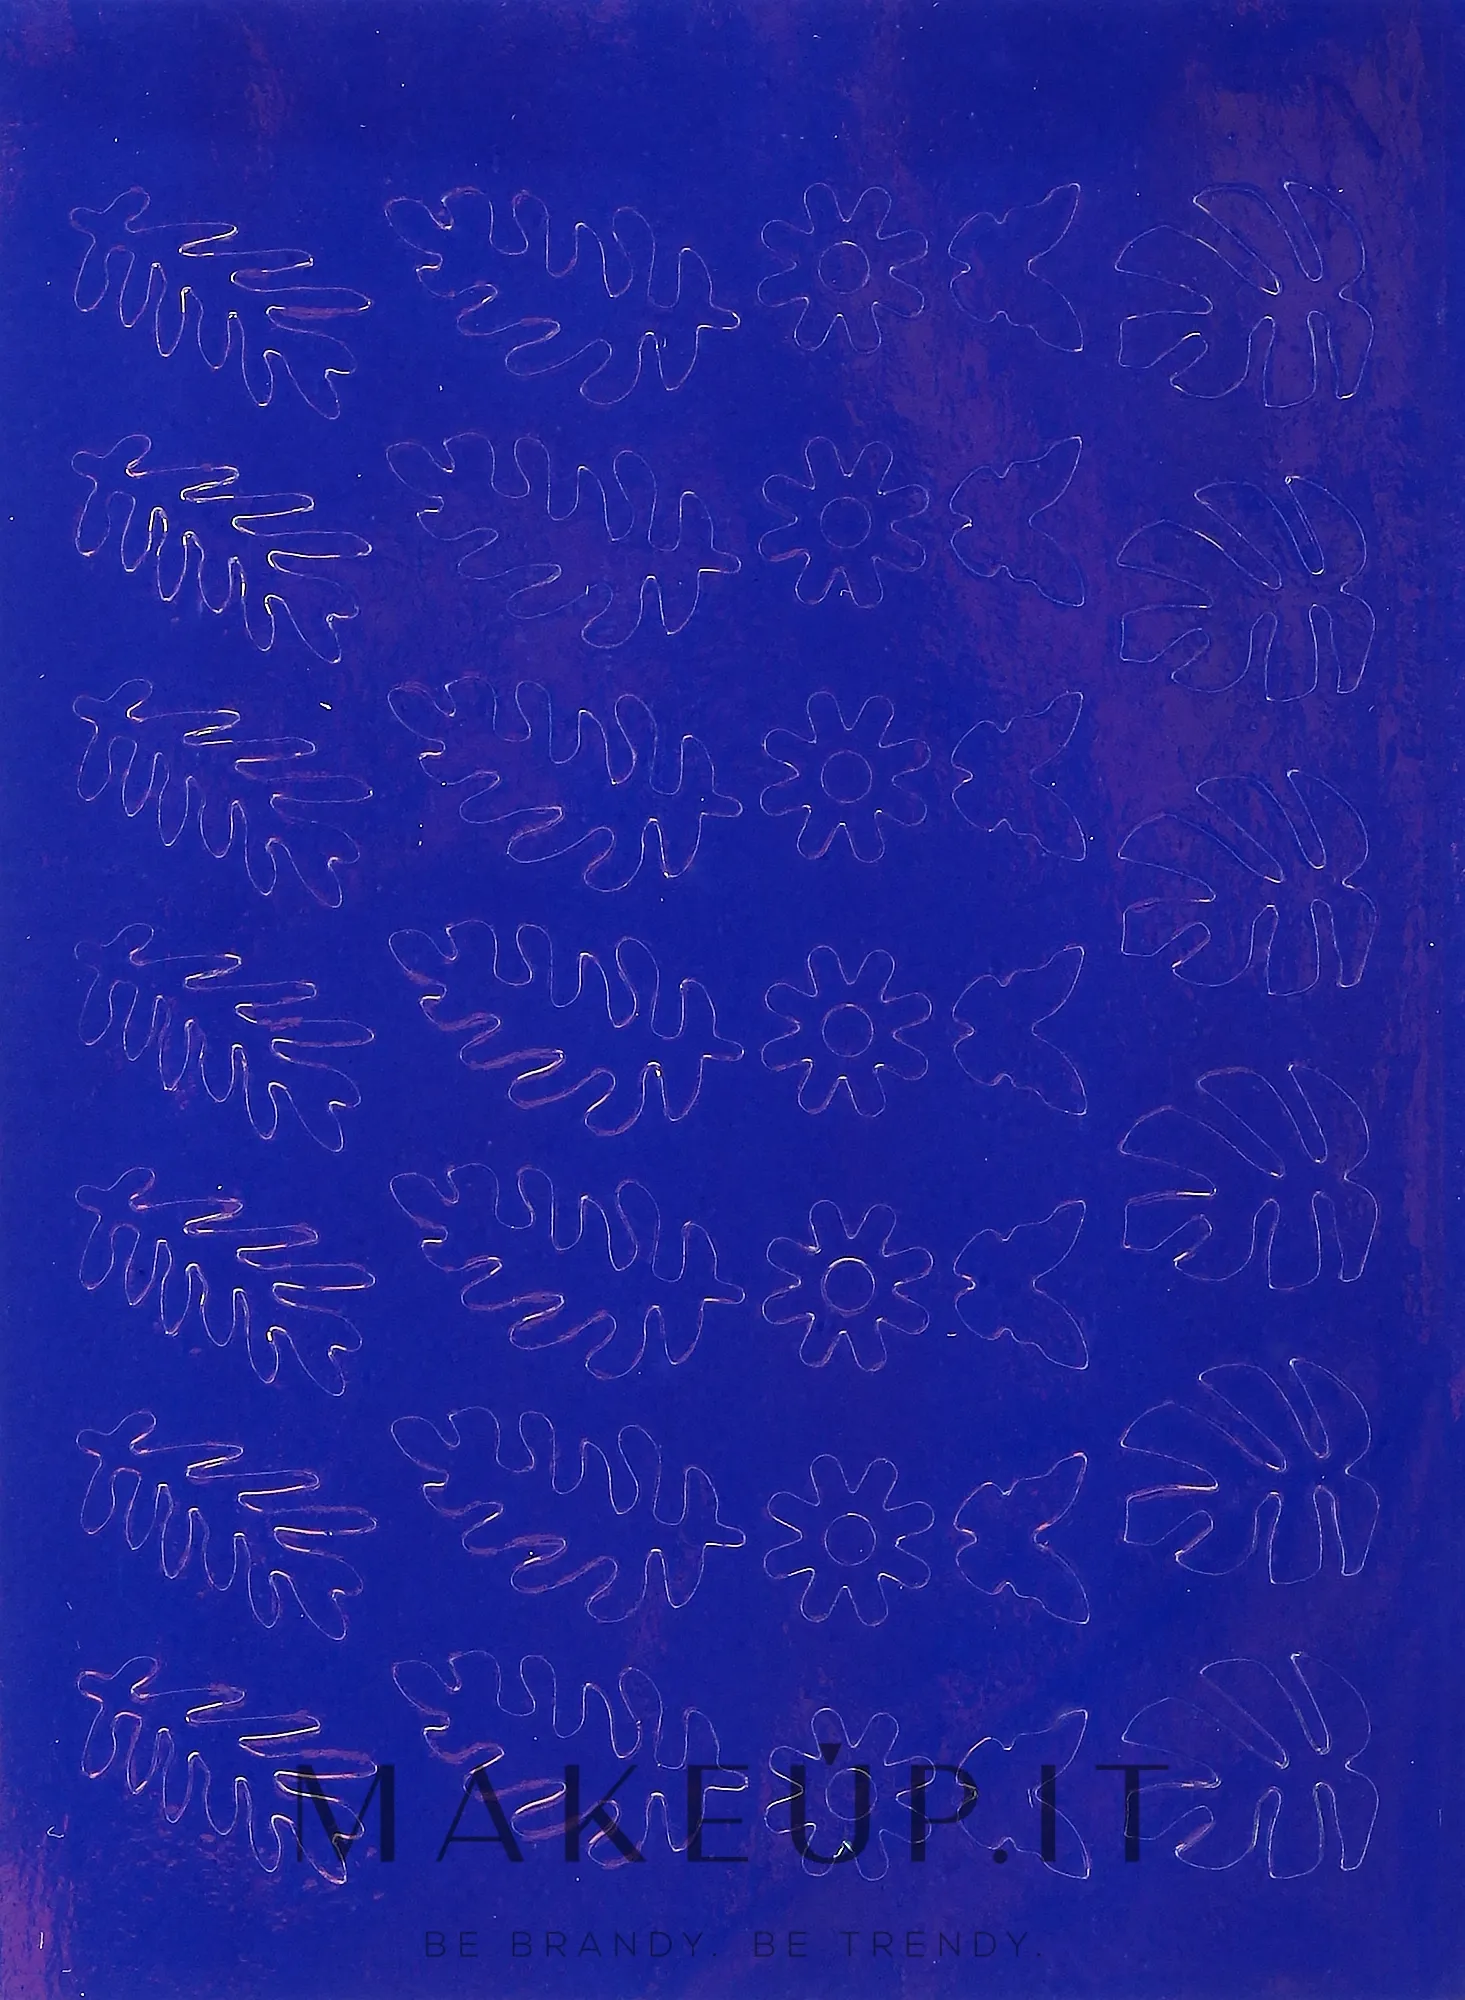 MAKEUP.IT
BE BRANDY. BE TRENDY.